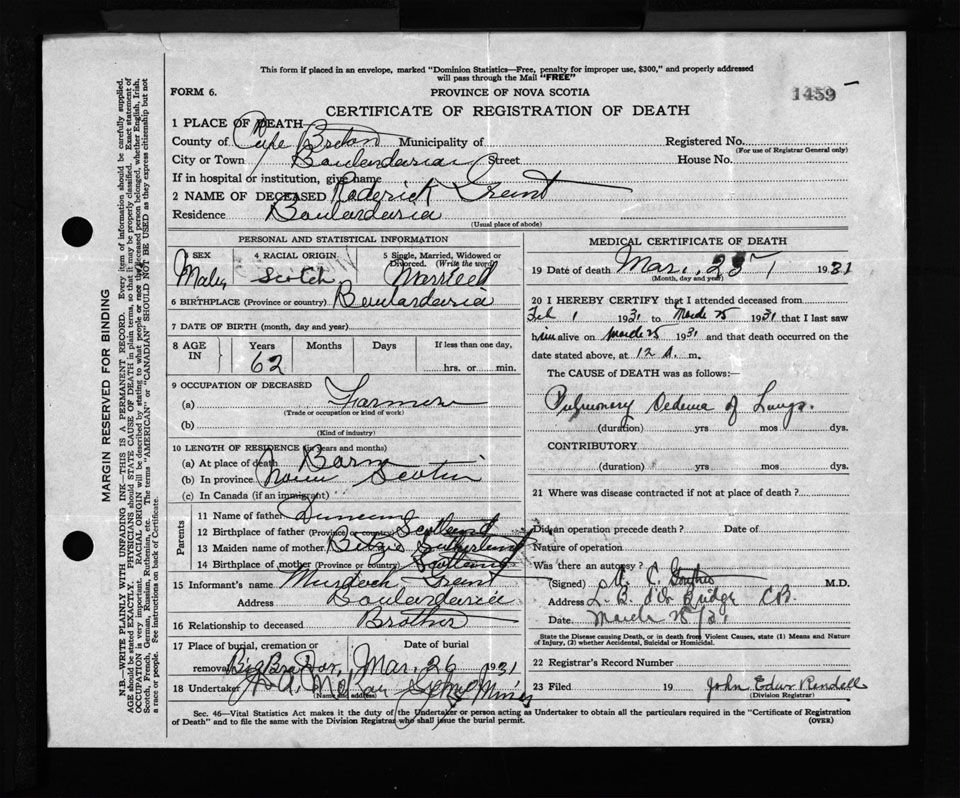 This form if placed in an envelope, marked "Dominion Statistics—Free, penalty for improper use, $300," and properly addressed
will pass through the Mail "FREE"
FORM 6.
PROVINCE OF NOVA SCOTIA
1459
CERTIFICATE OF REGISTRATION OF DEATH
1 PLACE OF DEATH—
County of Cape Breton Municipality of Registered No.
(For use of Registrar General only)
City or Town Boulardaria Street House No.
If in hospital or institution, give name
2 NAME OF DECEASED Roderick Grant
Residence Boulardaria
(Usual place of abode)
PERSONAL AND STATISTICAL INFORMATION
3 SEX Male
4 RACIAL ORIGIN Scotch
5 Single, Married, Widowed or Divorced. (Write the word) Married
6 BIRTHPLACE (Province or country) Boulardaria
7 DATE OF BIRTH (month, day and year)
8 AGE IN Years Months Days If less than one day,
62 hrs. or min.
9 OCCUPATION OF DECEASED
(a) Farmer
(Trade or occupation or kind of work)
(b)
(Kind of industry)
10 LENGTH OF RESIDENCE (in years and months)
(a) At place of death Born
(b) In province Nova Scotia
(c) In Canada (if an immigrant)
Parents
11 Name of father Duncan
12 Birthplace of father (Province or country) Scotland
13 Maiden name of mother Sutherland
14 Birthplace of mother (Province or country) Scotland
15 Informant's name Murdoch Grant
Address Boulardaria
16 Relationship to deceased Brother
17 Place of burial, cremation or removal Date of burial
Big Bras Dor, Mar. 26 1931
18 Undertaker Sydney Mines
(Name and address)
MEDICAL CERTIFICATE OF DEATH
19 Date of death Mar. 25 1931
(Month, day and year)
20 I HEREBY CERTIFY that I attended deceased from
Feb 1 1931 to March 25 1931 that I last saw
him alive on March 25 1931 and that death occurred on
date stated above, at 12 A. m.
The CAUSE of DEATH was as follows:—
Pulmonary Oedema of Lungs.
(duration) yrs mos dys.
CONTRIBUTORY
(duration) yrs mos dys.
21 Where was disease contracted if not at place of death?
Did an operation precede death? Date of
Nature of operation
Was there an autopsy?
(Signed) M.D.
Address L. B. d'Or Bridge CB.
Date. March 25/31
State the Disease causing Death, or in death from Violent Causes, state (1) Means and Nature
of Injury, (2) whether Accidental, Suicidal or Homicidal.
22 Registrar's Record Number
23 Filed 19 John Rendell
(Division Registrar)
Sec. 46—Vital Statistics Act makes it the duty of the Undertaker or person acting as Undertaker to obtain all the particulars required in the "Certificate of Registration
of Death" and to file the same with the Division Registrar who shall issue the burial permit.
(OVER)
MARGIN RESERVED FOR BINDING
N.B.—WRITE PLAINLY WITH UNFADING INK—THIS IS A PERMANENT RECORD. Every item of information should be carefully supplied.
AGE should be stated EXACTLY. PHYSICIANS should STATE CAUSE OF DEATH in plain terms, so that it may be properly classified. Exact statement of
OCCUPATION is very important. RACIAL ORIGIN will be described by stating to what people or race the deceased person belonged, whether English, Irish,
Scotch, French, German, Russian, Ruthenian, etc. The terms "AMERICAN" or "CANADIAN" SHOULD NOT BE USED as they express citizenship but not
a race or people. See instructions on back of Certificate.